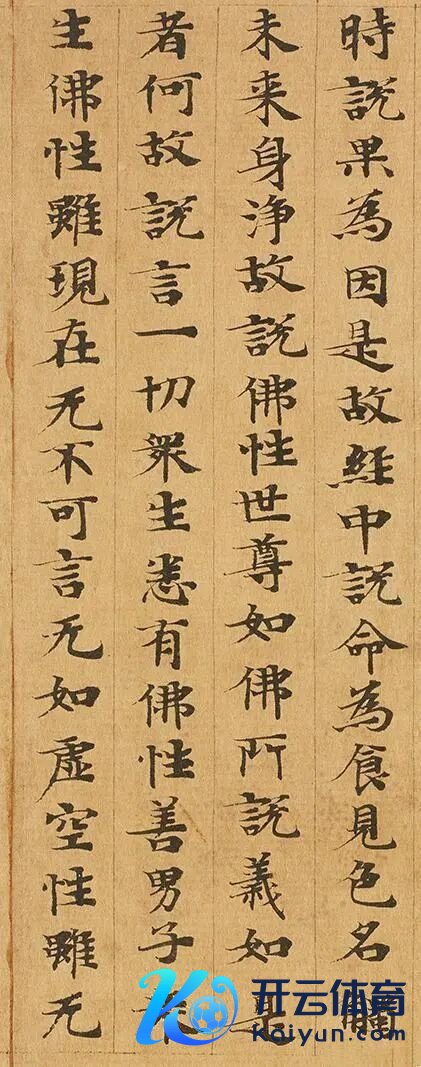 時說果為因是故経中說命為食見色名觸
未来身浄故說佛性世尊如佛所說義如是
者何故說言一切衆生悉有佛性善男子衆
生佛性雖現在无不可言无如虛空性雖无
开云体育
Kaiyun.com